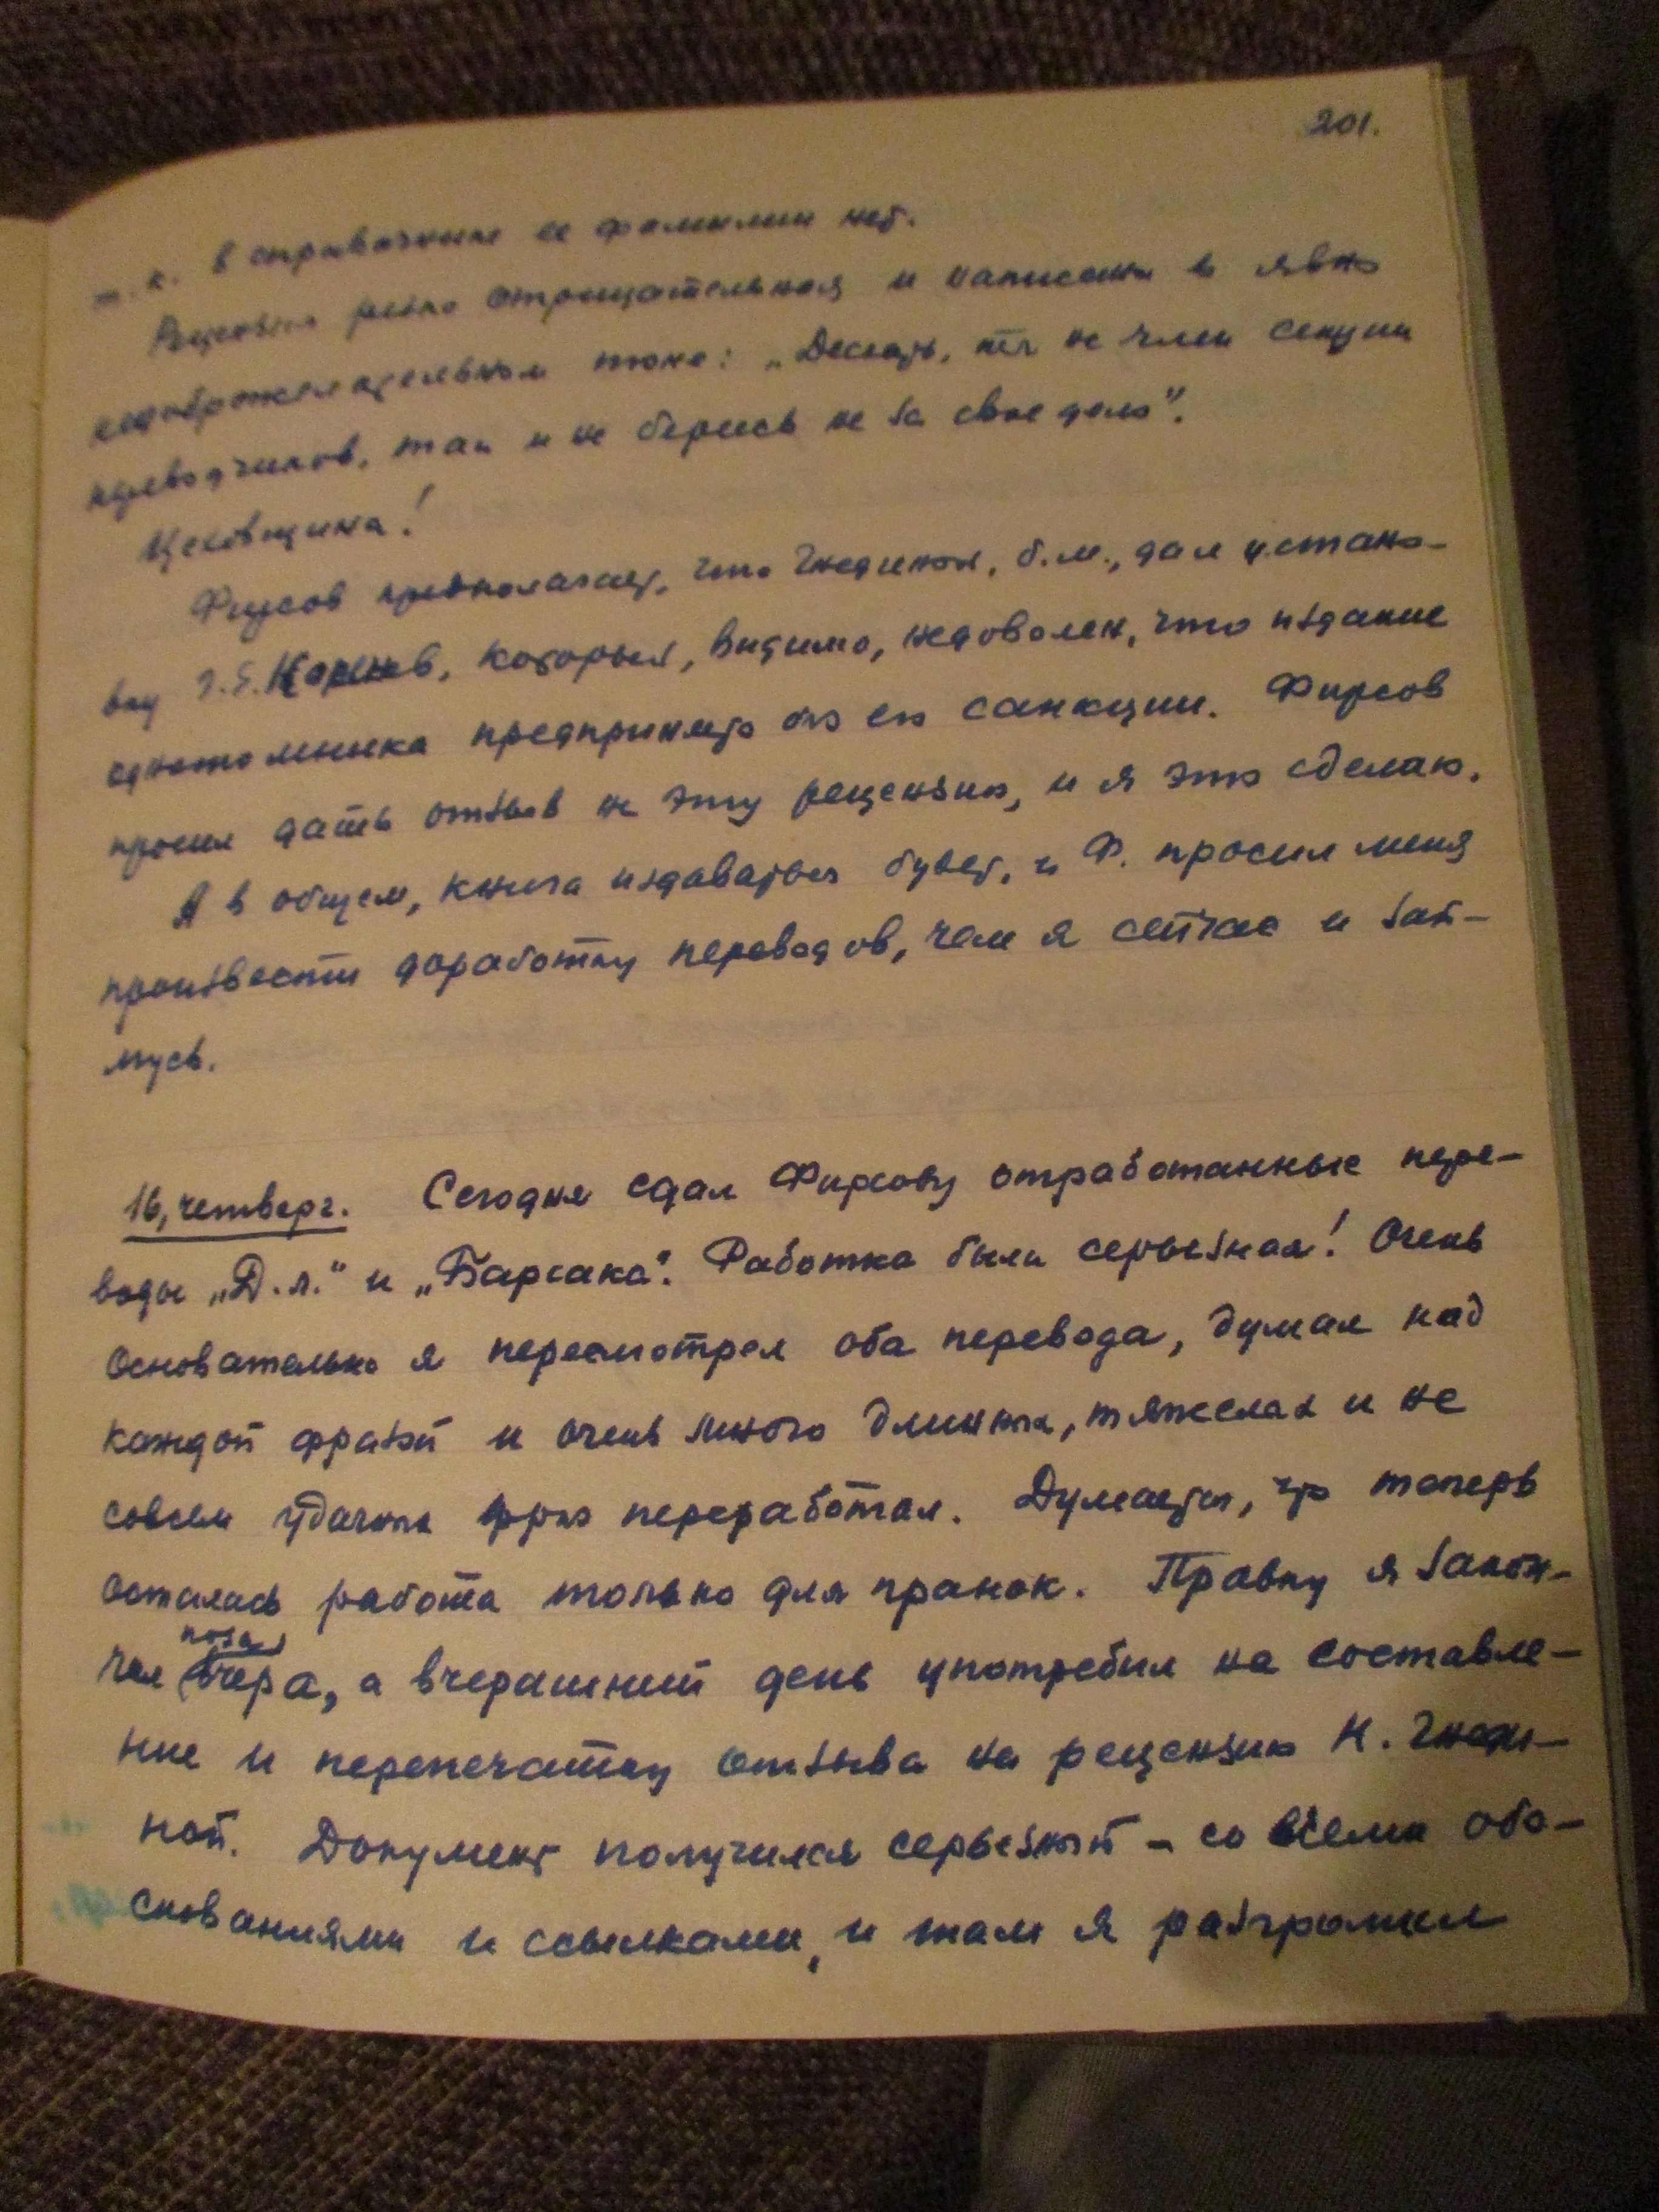 201.
т. к. в справочнике ее фамилии нет.
Рецензия резко отрицательная и написана в явно
недоброжелательном тоне: „Дескать, ты не член секции
переводчиков, так и не берись не за свое дело".
Цеховщина!
Фирсов предполагает, что Гнединой, б.м., дал установ-
ку , который, видимо, недоволен, что издание
однотомника предпринято без его санкции. Фирсов
просил дать отзыв на эту рецензию, и я это сделаю.
А в общем, книга издаваться будет, и Ф. просил меня
произвести доработку переводов, чем я сейчас и зай-
мусь.
16, четверг. Сегодня сдал Фирсову отработанные пере-
воды „Д.л." и „Барсака". Работка была серьезная! Очень
основательно я пересмотрел оба перевода, думал над
каждой фразой и очень много длинных, тяжелых и не
совсем удачных фраз переработал. Думается, что теперь
осталась работа только для гранок. Правку я закон-
чил позавчера, а вчерашний день употребил на составле-
ние и перепечатку отзыва на рецензию Н. Гнеди-
ной. Документ получился серьезный – со всеми обо-
снованиями и ссылками, и там я разгромил